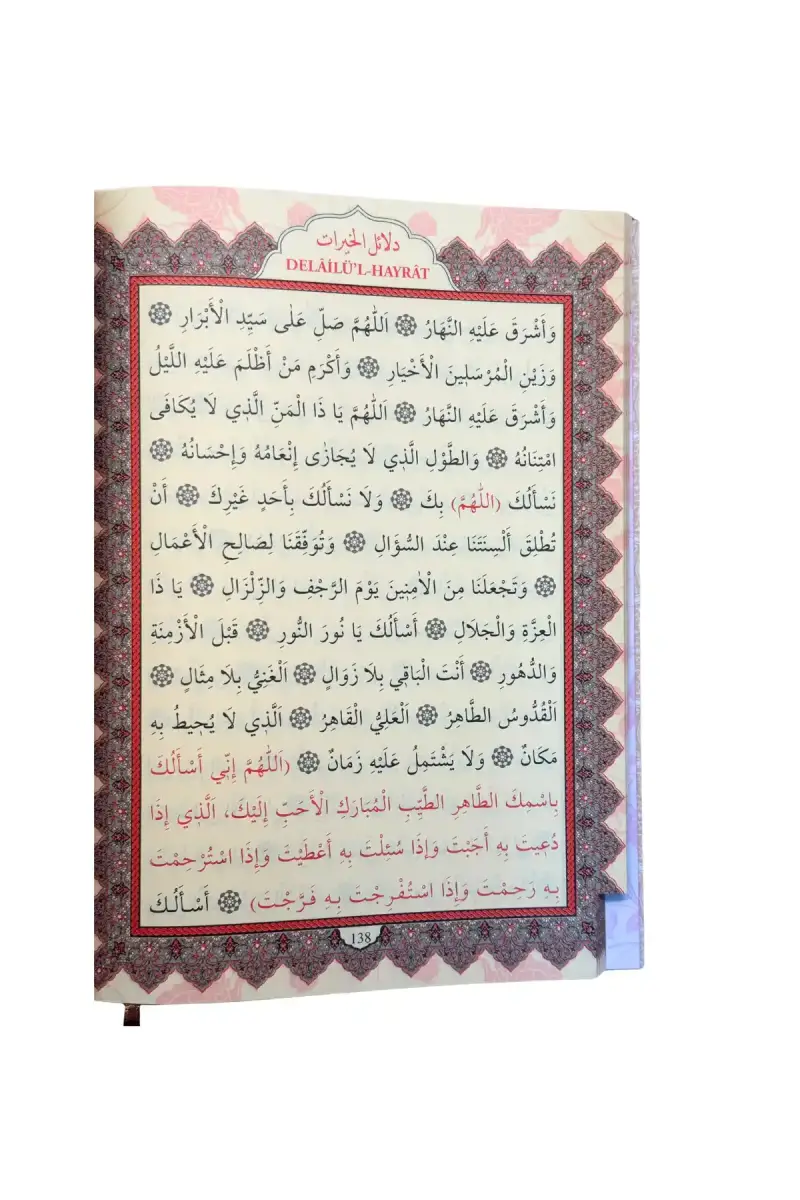 دلائل الخيرات
DELÂİLÜ'L-HAYRÂT
وَأَشْرَقَ عَلَيْهِ النَّهَارُ ۞ اَللّٰهُمَّ صَلِّ عَلٰى سَيِّدِ الْأَبْرَارِ ۞
وَزَيْنِ الْمُرْسَلِينَ الْأَخْيَارِ ۞ وَأَكْرَمِ مَنْ أَظْلَمَ عَلَيْهِ اللَّيْلُ
وَأَشْرَقَ عَلَيْهِ النَّهَارُ ۞ اَللّٰهُمَّ يَا ذَا الْمَنِّ الَّذِي لَا يُكَافَى
امْتِنَانُهُ ۞ وَالطَّوْلِ الَّذِي لَا يُجَازٰى إِنْعَامُهُ وَإِحْسَانُهُ ۞
نَسْأَلُكَ (اَللّٰهُمَّ) بِكَ ۞ وَلَا نَسْأَلُكَ بِأَحَدٍ غَيْرِكَ ۞ أَنْ
تُطْلِقَ أَلْسِنَتَنَا عِنْدَ السُّؤَالِ ۞ وَتُوَفِّقَنَا لِصَالِحِ الْأَعْمَالِ
۞ وَتَجْعَلَنَا مِنَ الْاٰمِنِينَ يَوْمَ الرَّجْفِ وَالزِّلْزَالِ ۞ يَا ذَا
الْعِزَّةِ وَالْجَلَالِ ۞ أَسْأَلُكَ يَا نُورَ النُّورِ ۞ قَبْلَ الْأَزْمِنَةِ
وَالدُّهُورِ ۞ أَنْتَ الْبَاقِي بِلَا زَوَالٍ ۞ اَلْغَنِيُّ بِلَا مِثَالٍ ۞
اَلْقُدُّوسُ الطَّاهِرُ ۞ اَلْعَلِيُّ الْقَاهِرُ ۞ اَلَّذِي لَا يُحِيطُ بِهِ
مَكَانٌ ۞ وَلَا يَشْتَمِلُ عَلَيْهِ زَمَانٌ ۞ (اَللّٰهُمَّ إِنِّي أَسْأَلُكَ
بِاسْمِكَ الطَّاهِرِ الطَّيِّبِ الْمُبَارَكِ الْأَحَبِّ إِلَيْكَ، اَلَّذِي إِذَا
دُعِيتَ بِهِ أَجَبْتَ وَإِذَا سُئِلْتَ بِهِ أَعْطَيْتَ وَإِذَا اسْتُرْحِمْتَ
بِهِ رَحِمْتَ وَإِذَا اسْتُفْرِجْتَ بِهِ فَرَّجْتَ) ۞ أَسْأَلُكَ
138